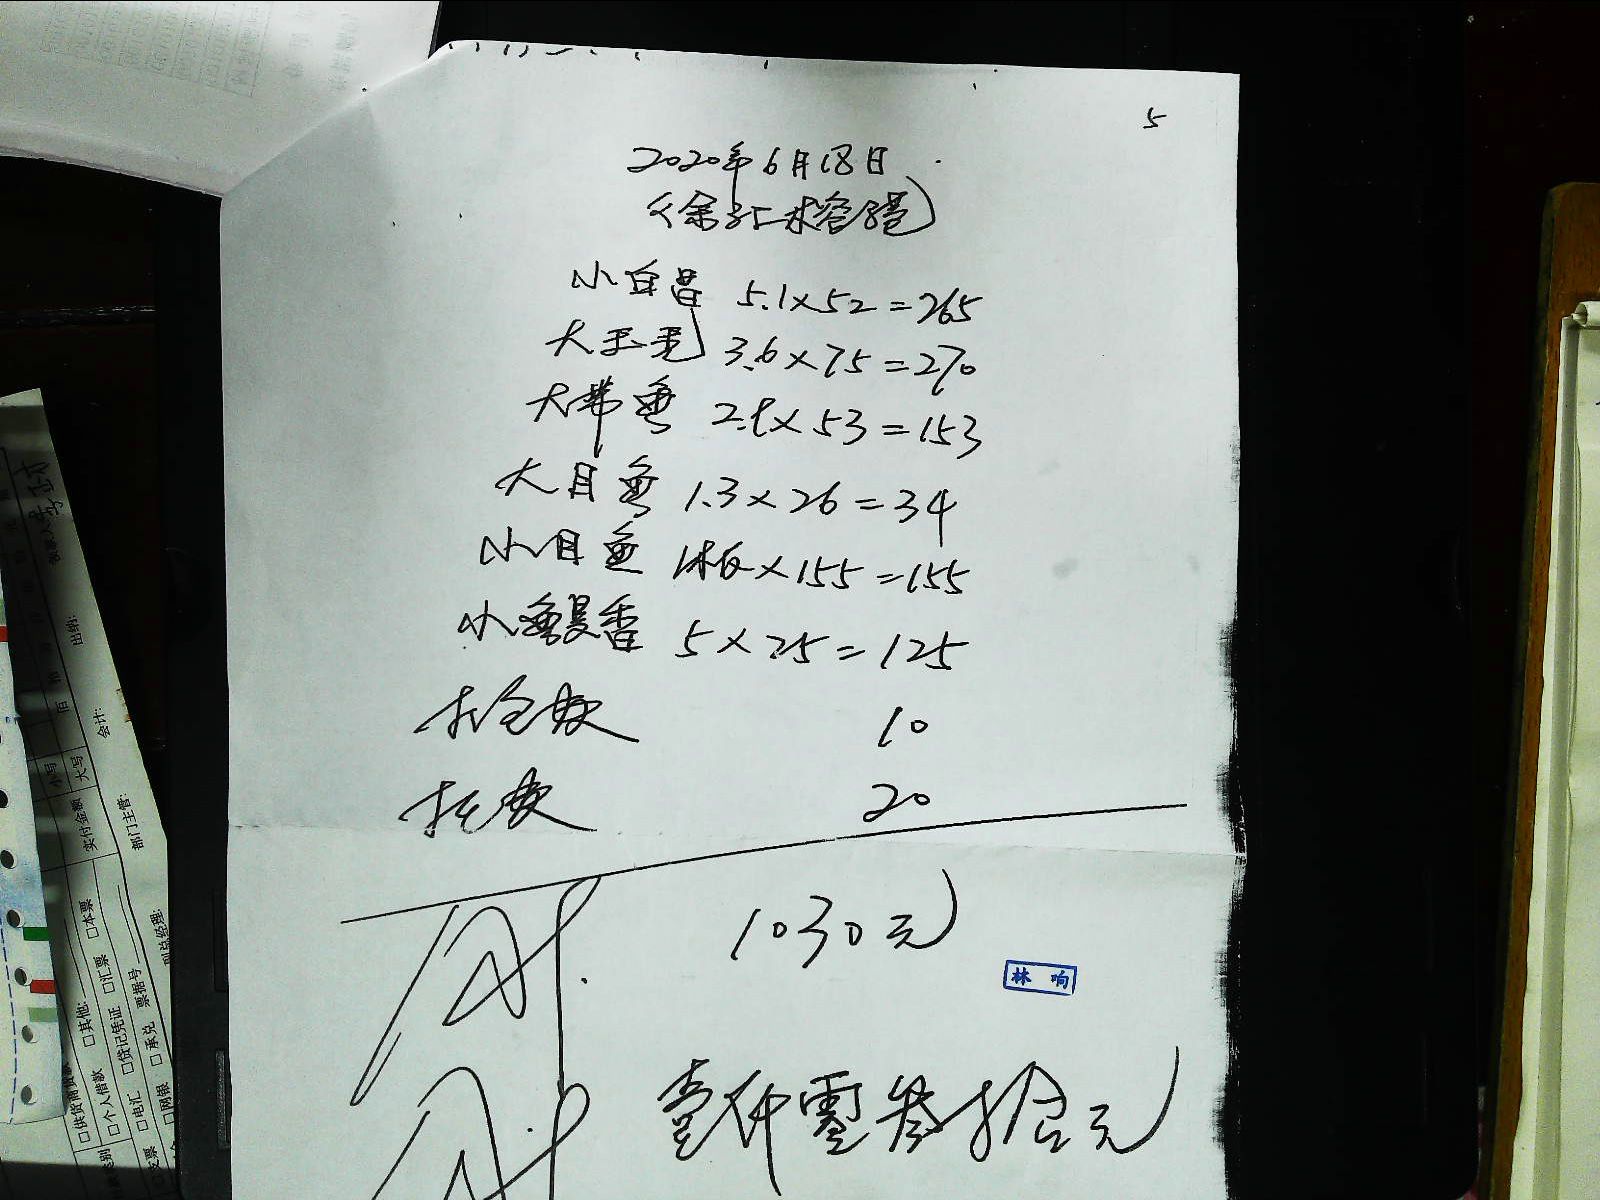 5
2020年6月18日
(徐汇榕港)
小白昌 5.1×52=265
大玉毛 3.6×75=270
大带鱼 2.9×53=153
大目鱼 1.3×26=34
小目鱼 ×155=155
小鱼曼香 5×25=125
打包费 10
托费 20
1030元
林响
壹仟零叁拾元
实付金额
小写
大写
佰
拾
万
出纳:
会计:
部门主管:
副总经理:
□本票
□汇票
票据号
□其他:
□贷记凭证
□承兑
□供货商货款
□个人借款
□电汇
□网银
□支票